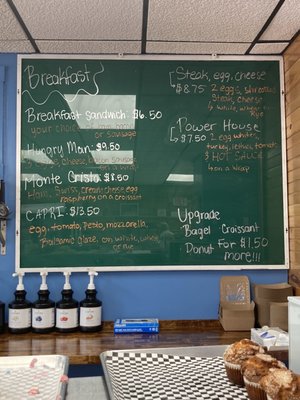 Breakfast
Breakfast sandwich $6.50
your choice of ham, bacon
or sausage
Hungry Man $9.50
cheese, bacon sausage
on a wrap
Monte Cristo $8.50
Ham, Swiss, cream cheese egg
raspberry on a croissant
CAPRI $13.50
egg, tomato, Pesto, mozzarella,
Balsamic glaze, on white, wheat
or rye
Steak, egg, cheese
$8.75 2 eggs, shredded
Steak, cheese
on white, wheat
Rye
Power House
$7.50 2 egg whites,
turkey, lettuce, tomato
& HOT SAUCE
on a wrap
Upgrade
Bagel - Croissant
Donut For $1.50
more!!!